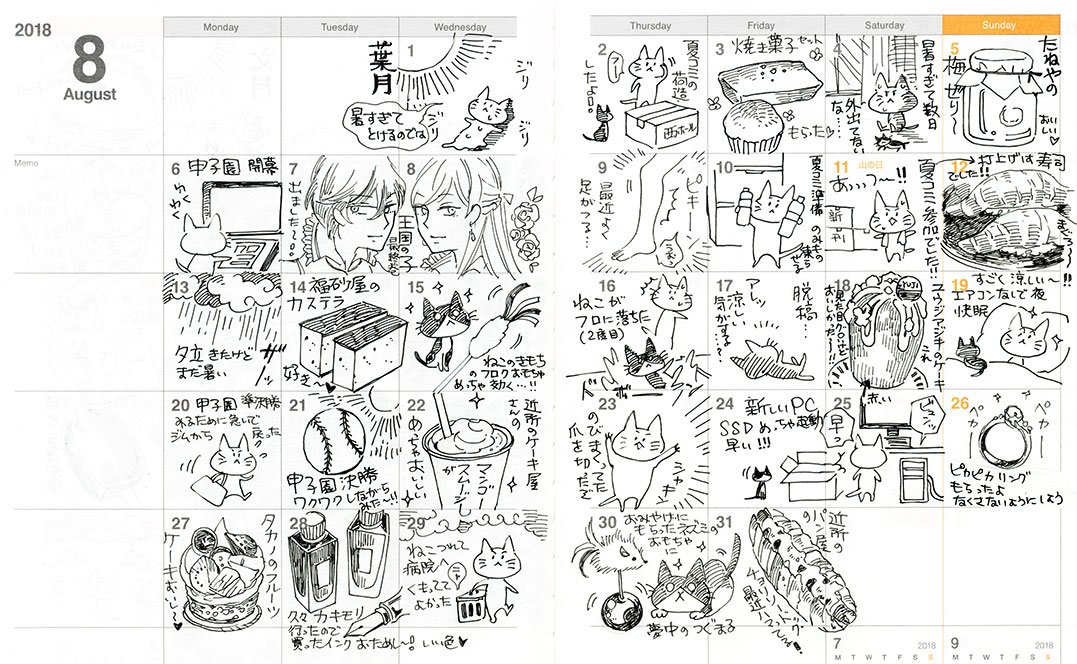 2018
8
August
Monday
Tuesday
Wednesday
Thursday
Friday
Saturday
Sunday
Memo
葉月
1
ジリ
ジリ
暑すぎて
とけるのでは
2
夏コミの
荷造り
したよ
西ホール
3
焼き菓子セット
もらった
4
暑すぎて数日
外出てない…
5
たねやの
梅ぜりー
おいしい♡
6
甲子園 開幕
わくわく
7
出ました…
8
王国の子
最終巻
9
最近よく
足がつる…
ピキーン
10
夏コミ準備
のみもの
凍らせる
11
山の日
あぁぁつ〜!!
新刊
夏コミ参加でした!!
12
打上げは寿司
でした!!
まぐろ〜!!
13
夕立きたけど
まだ暑い
ザーッ
14
福砂屋の
カステラ
好き〜
15
ねこのきもち
のフロクおもちゃ
めっちゃ効く…!!
16
ねこが
フロに落ちた
(2度目)
17
脱稿…
アレッ
涼しい
気がするよ…?
18
FUJI
見た目クロだけど
おいしかった〜!!
ユウジアジキのケーキ
19
すごく涼しい〜!!
エアコンなしで夜
快眠
20
甲子園 準決勝
みるために急いで
ジムから戻ったクマっ
21
甲子園決勝
ワクワクしながら
みた〜!!
22
近所のケーキ屋
さんの
マンゴー
スムージー
が
めちゃおいしい
23
のびまくってた
爪を切ったで
シャキーン
24
新しいPC
SSDめっちゃ起動
早い!!!
25
早っ
赤い
26
ペカ
ペカ
ピカピカリング
もらったよ
なくさないようにしよう
27
タカノのフルーツ
ケーキおいし〜♥
28
久々カキモリ
行ったので
買ったインクおためし〜!いい色♥
29
ねこつれて
病院へ
くもってて
よかった
ニャー
30
おみやげに
もらったネズミの
おもちゃに
夢中のつぐまる
31
近所の
パン屋の
最近ハマってる!!
7
2018
M T W T F S S
9
2018
M T W T F S S